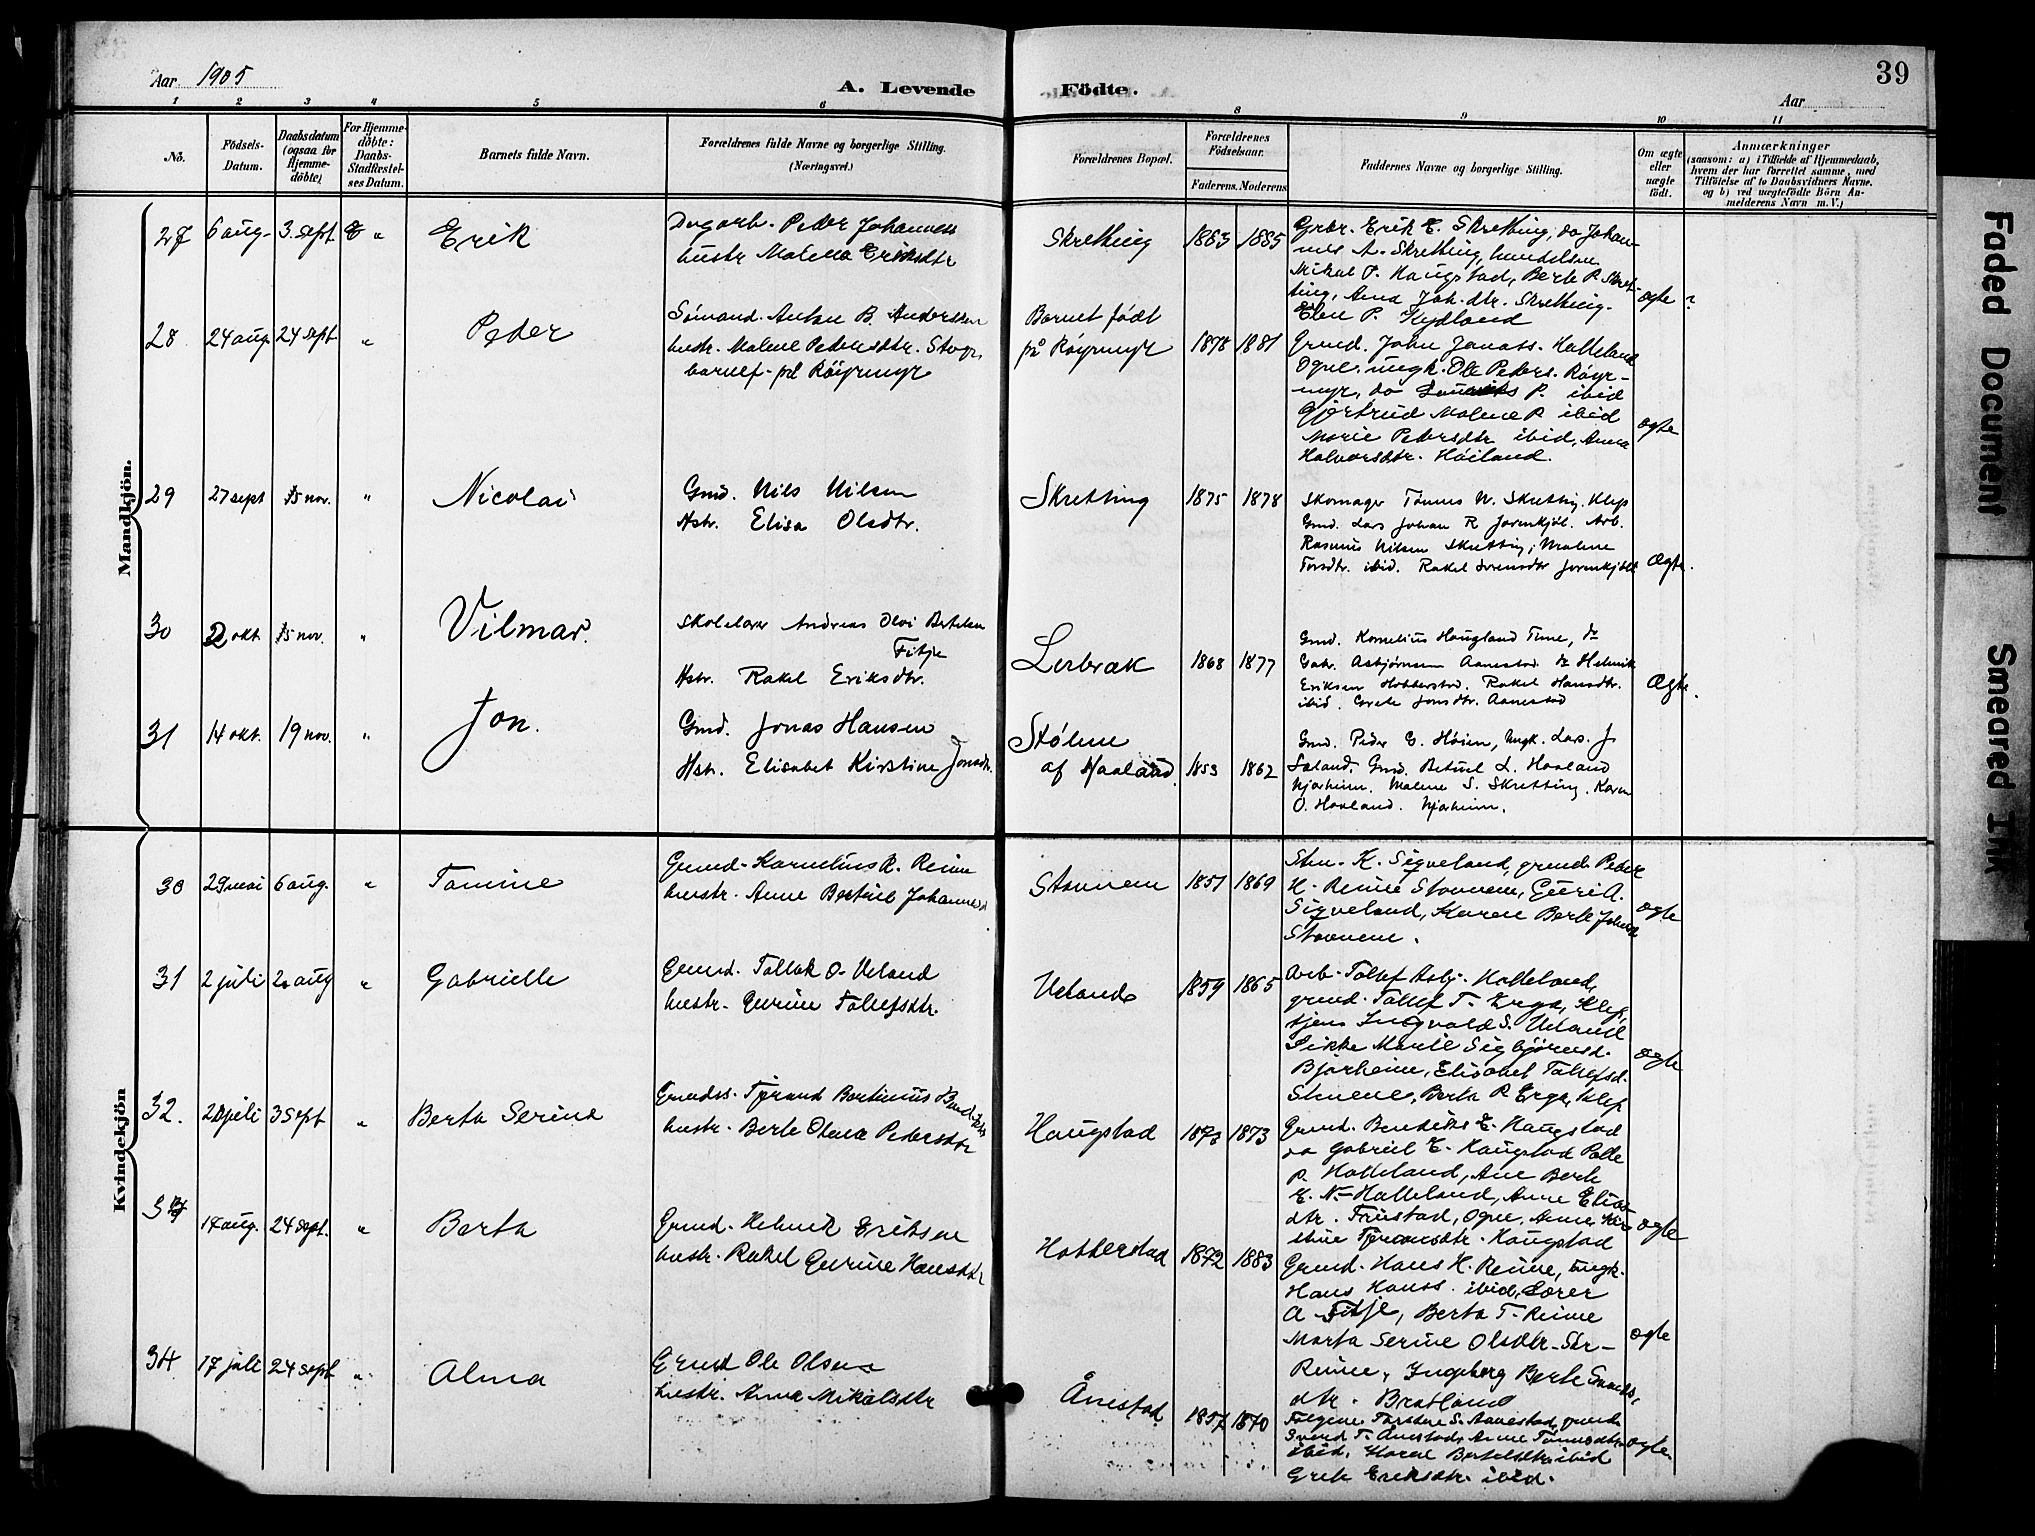 Aar 1905
A. Levende Födte.
39
Aar
1 2 3 4 5 6 8 9 10 11
No.
Födsels-Datum.
Daabsdatum (ogsaa for Hjemme-döbte)
For Hjemme-döbte: Daabs-Stadfestel-ses Datum.
Barnets fulde Navn.
Forældrenes fulde Navne og borgerlige Stilling. (Næringsvei.)
Forældrenes Bopæl.
Forældrenes Födselsaar.
Faderens. Moderens
Faddernes Navne og borgerlige Stilling.
Om ægte eller uægte födt.
Anmærkninger
(saasom: a) i Tilfælde af Hjemmedaab, hvem der har forrettet samme, med Tilföielse af to Daabsvidners Navne. og b) ved uægtefödte Börn An-melderens Navn m. V.)
Mandkjön.
27 6 aug. 3. sept. " Erik
Dagarb. Peder Johanness
hustr Malena Eriksdtr
Skretting 1863 1885
Grbr. Erik E. Skretting, do Johan-
nes A. Skretting, handelsm
Mikal T. Haugstad, Berte P. Skret-
ting, Anna Joh.dtr. Skretting.
Elen P. Kydland
ægte ?
28 24 aug 24 sept. " Peder
Sömand. Anton B. Anderssen
hustr. Malene Pedersdtr.
barnef. på Röyrmyr
Barnet födt
på Röyrmyr 1878 1881
Grmd. John Jonass. Halleland
Ogne, ungk. Ole Peders. Röyr-
myr, do P. ibid
Gjertrud Malene P. ibid
Marie Pedersdtr ibid, Anna
Halvorsdtr. Höiland.
ægte
29 27 sept 15 nov. " Nicolai
Gmd. Nils Nilsen
Hstr. Elisa Olsdtr.
Skretting 1875 1878
Skomager Tönnes N. Skretting, Klep
Gmd. Lars Johan R Jorenkjöl. Arb.
Rasmus Nilsen Skretting, Malene
Torsdtr. ibid. Rakel Svensdtr Jorenkjöl
Ægte.
30 2 okt. 15 nov. " Vilmar.
Skolelærer Andreas Olai Bertelsen
Fitje
Hstr. Rakel Eriksdtr.
Lerbræk 1868 1877
Gmd. Kornelius Haugland Time, do
Gabr. Asbjørnsen Aanestad. do Helmik
Eriksen Hobberstad. Rakel Hansdtr.
ibid. Grete Jonsdtr. Aanestad
Ægte.
31 14 okt. 19 nov. " Jon.
Gmd. Jonas Hansen
Hstr. Elisabet Kirstine Jonsdtr.
Stølene
af Haaland. 1853 1862
Gmd. Peder E. Höien, Ungk. Lars. J
Gmd. Betuel L. Haaland
Njærheim. Malene S. Skretting. Karen
O. Haaland. Njærheim.
Kvindekjön
30 29 mai 6 aug. " Tomine
Grmd. Kornelius R. Reime
hustr. Anne Bertine Johannesd
Stavnem 1851 1869
Sten. K. Sigveland, grmd. Peder
H. Reime Stavnem, Guri A.
Sigveland, Karen Berte Johansd
Stavnem.
ægte
31 2 juli 20 aug " Gabrielle
Grmd. Tollak O. Ueland
hustr. Gurine Tollefsdtr.
Ueland 1859 1865
Arb. Tollef Asbj. Halleland,
grmd. Tollef T. Erga, Klep,
tjen. Ingvald S. Ueland
Sikke Marie Sigbjörnsd.
Bjärheim, Elisabet Tollefsd.
Berta R Erga, Klep
ægte
32. 20 juli 3 sept " Berta Serine
Grmdss. Tjerand Bertinius Bendikts
hustr. Berte Olena Pedersdtr
Haugstad 1873 1873
Grmd. Bendikts E. Haugstad
do Gabriel E. Haugstad Palle
P. Halleland, Ane Berte
E. N. Halleland, Anne Elias-
dtr. Frustad, Ogne, Anne Kir-
stine Tjerandsdtr. Haugstad
ægte
33 14 aug. 24 sept. " Berta
Grmd. Helmik Eriksen
hustr. Rakel Gurine Hansdtr
Hobberstad 1872 1883
Grmd. Hans K. Reime, ungk.
Hans Hanss. ibid, Lærer
A. Fitje, Berta T. Reime
Marta Serine Olsdtr. Str-
Reime, Ingeborg Berte
dtr. Bratland
ægte
34 17 juli 24 sept " Alma
Grmd Ole Olsen
hustr. Anna Mikalsdtr
Ånestad 1857 1870
Torsten S. Aanestad, grmd.
Svend T. Ånestad, Anne Tönnesdtr
ibid, Karen Bertelsdtr ibid
Grete Eriksdtr. ibid.
ægte
Faded Document
Smeared Ink